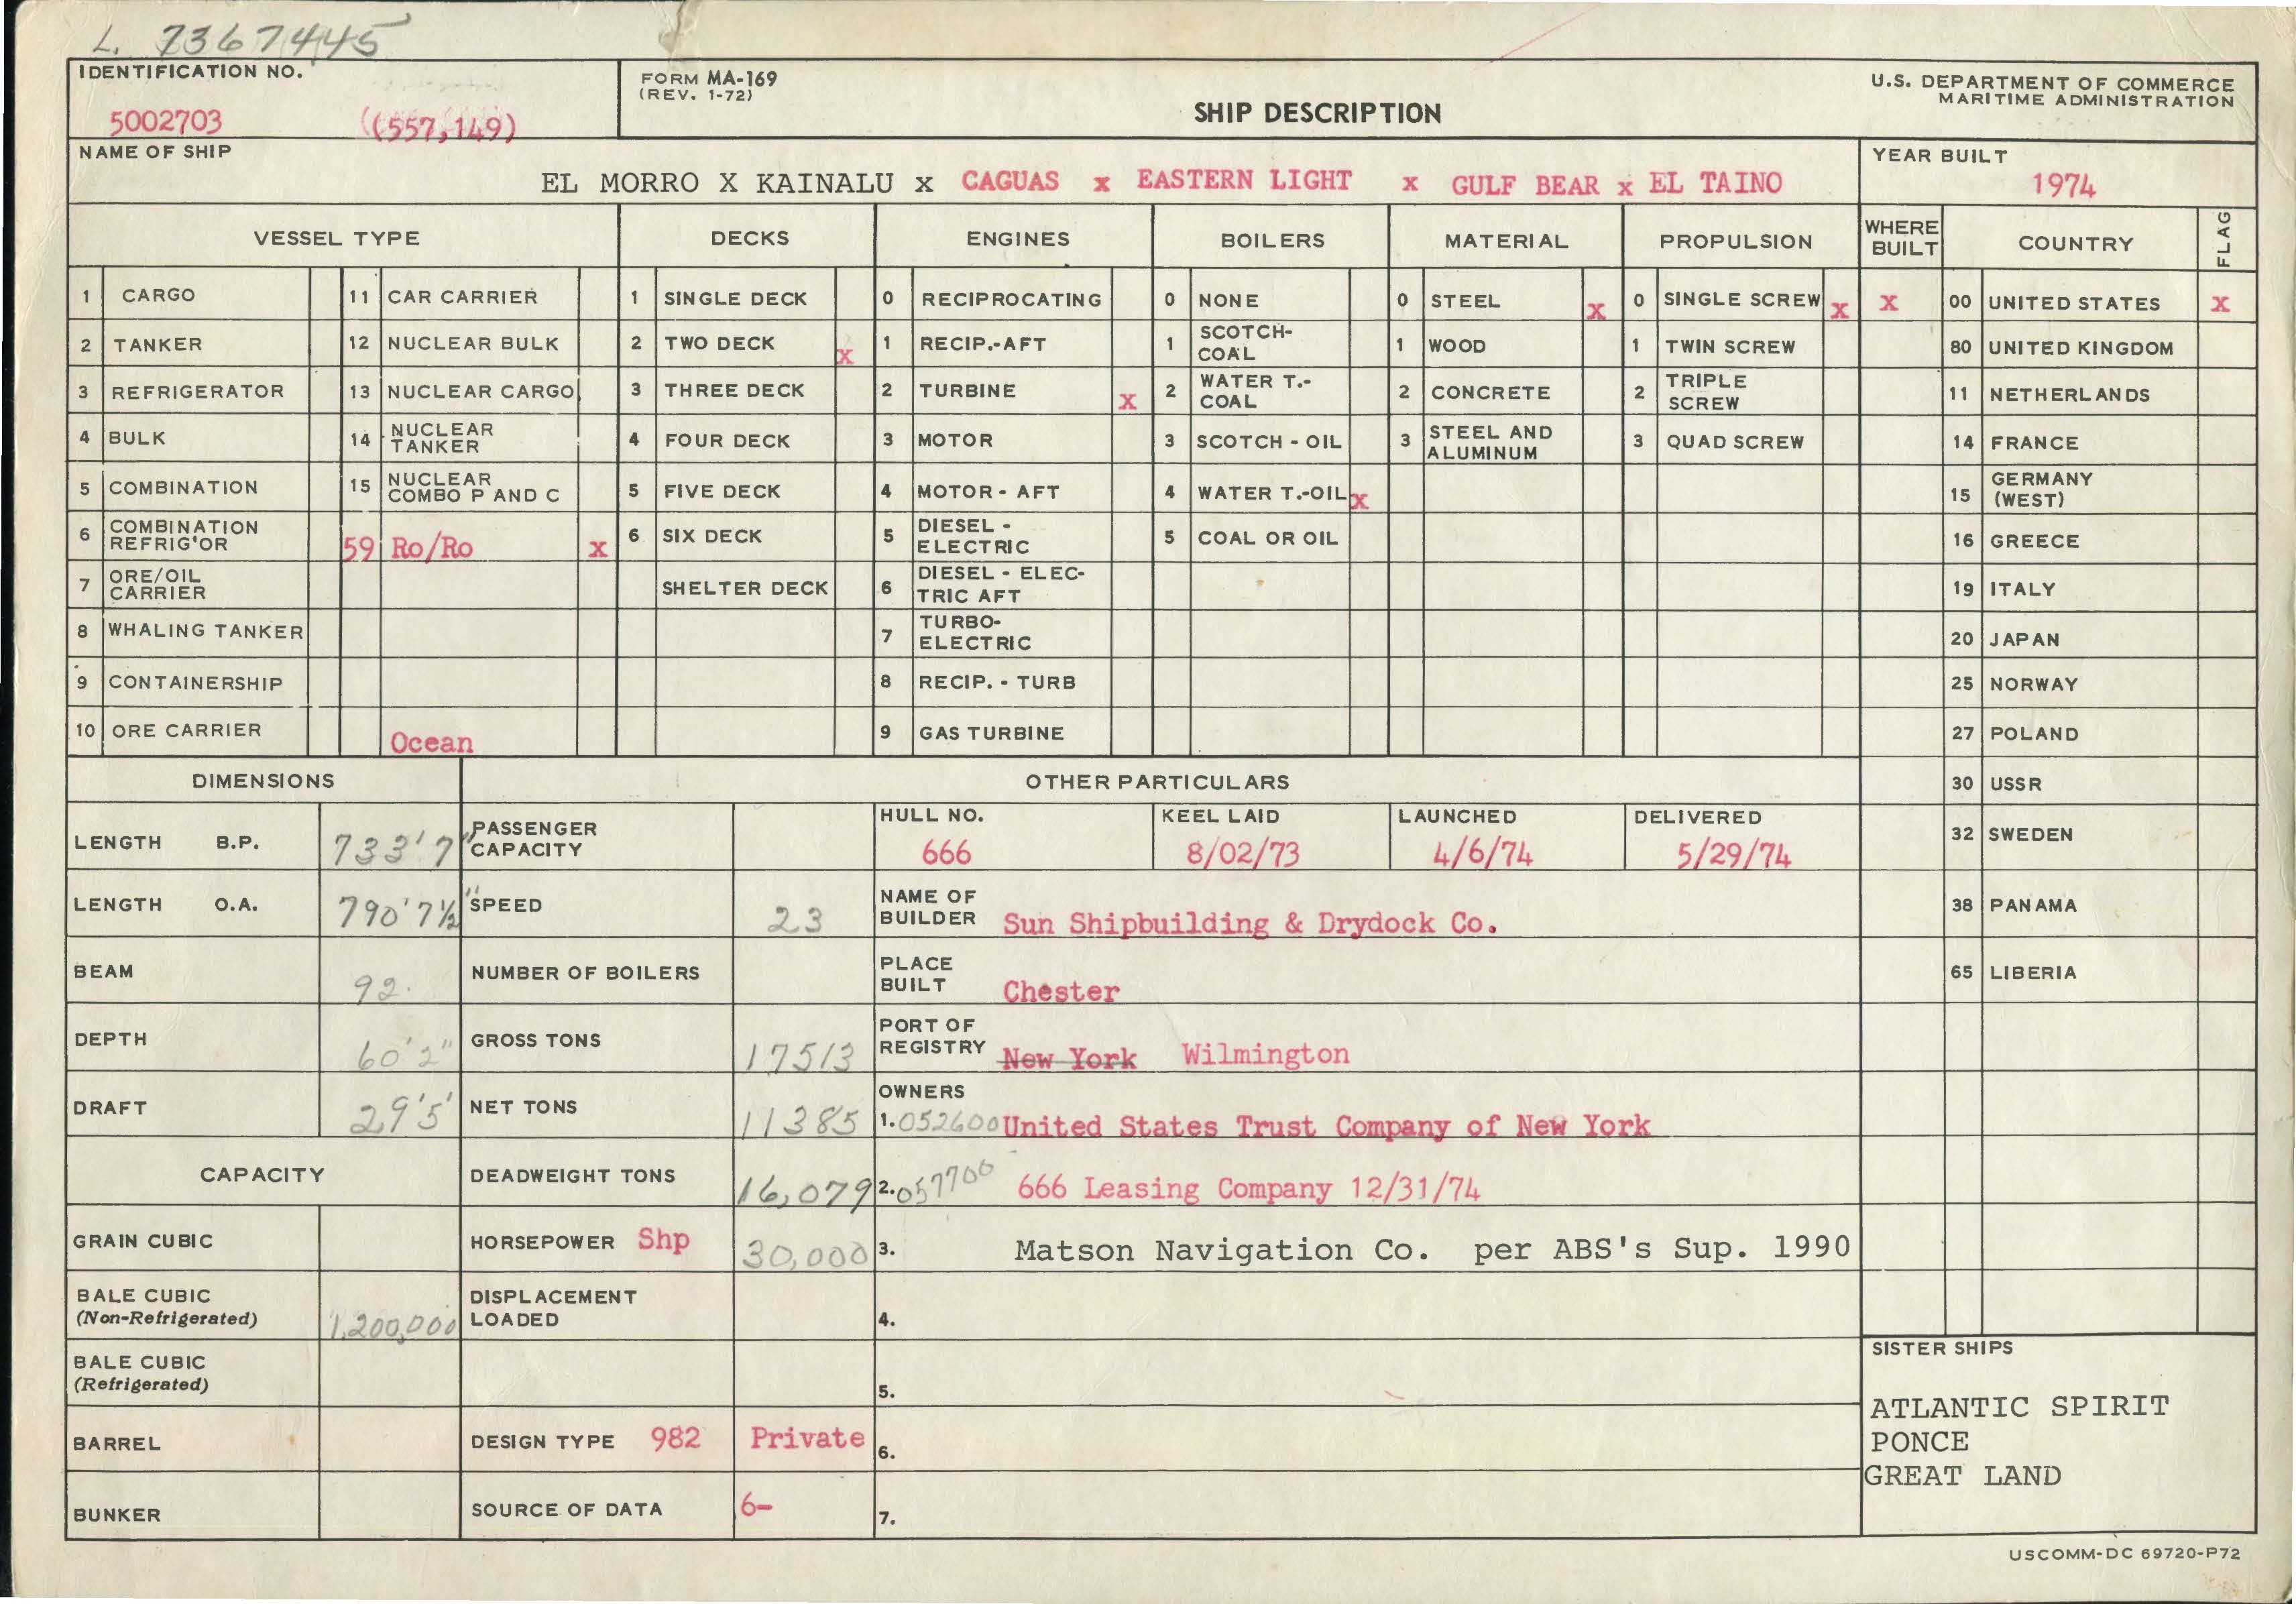 L. 7367445
IDENTIFICATION NO.
5002703 (557,149)
FORM MA-169
(REV. 1-72)
SHIP DESCRIPTION
U.S. DEPARTMENT OF COMMERCE
MARITIME ADMINISTRATION
NAME OF SHIP
EL MORRO X KAINALU x CAGUAS x EASTERN LIGHT x GULF BEAR x EL TAINO
YEAR BUILT
1974
VESSEL TYPE DECKS ENGINES BOILERS MATERIAL PROPULSION WHERE BUILT COUNTRY FLAG
1 CARGO 11 CAR CARRIER 1 SINGLE DECK 0 RECIPROCATING 0 NONE 0 STEEL x 0 SINGLE SCREW x x 00 UNITED STATES x
2 TANKER 12 NUCLEAR BULK 2 TWO DECK x 1 RECIP.-AFT 1 SCOTCH-COAL 1 WOOD 1 TWIN SCREW 80 UNITED KINGDOM
3 REFRIGERATOR 13 NUCLEAR CARGO 3 THREE DECK 2 TURBINE x 2 WATER T.-COAL 2 CONCRETE 2 TRIPLE SCREW 11 NETHERLANDS
4 BULK 14 NUCLEAR TANKER 4 FOUR DECK 3 MOTOR 3 SCOTCH - OIL 3 STEEL AND ALUMINUM 3 QUAD SCREW 14 FRANCE
5 COMBINATION 15 NUCLEAR COMBO P AND C 5 FIVE DECK 4 MOTOR - AFT 4 WATER T.-OIL x 15 GERMANY (WEST)
6 COMBINATION REFRIG'OR 59 Ro/Ro x 6 SIX DECK 5 DIESEL - ELECTRIC 5 COAL OR OIL 16 GREECE
7 ORE/OIL CARRIER SHELTER DECK 6 DIESEL - ELECTRIC AFT 19 ITALY
8 WHALING TANKER 7 TURBO-ELECTRIC 20 JAPAN
9 CONTAINERSHIP 8 RECIP. - TURB 25 NORWAY
10 ORE CARRIER Ocean 9 GAS TURBINE 27 POLAND
DIMENSIONS OTHER PARTICULARS 30 USSR
LENGTH B.P. 733'7" PASSENGER CAPACITY HULL NO. 666 KEEL LAID 8/02/73 LAUNCHED 4/6/74 DELIVERED 5/29/74 32 SWEDEN
LENGTH O.A. 790'7½" SPEED 23 NAME OF BUILDER Sun Shipbuilding & Drydock Co. 38 PANAMA
BEAM 92. NUMBER OF BOILERS PLACE BUILT Chester 65 LIBERIA
DEPTH 60'2" GROSS TONS 17513 PORT OF REGISTRY New York Wilmington
DRAFT 29'5' NET TONS 11385 OWNERS 1. 052600 United States Trust Company of New York
CAPACITY DEADWEIGHT TONS 16,079 2. 057700 666 Leasing Company 12/31/74
GRAIN CUBIC HORSEPOWER Shp 30,000 3. Matson Navigation Co. per ABS's Sup. 1990
BALE CUBIC (Non-Refrigerated) 1,200,000 DISPLACEMENT LOADED 4.
BALE CUBIC (Refrigerated) 5.
BARREL DESIGN TYPE 982 Private 6.
BUNKER SOURCE OF DATA 6- 7.
SISTER SHIPS
ATLANTIC SPIRIT
PONCE
GREAT LAND
USCOMM-DC 69720-P72